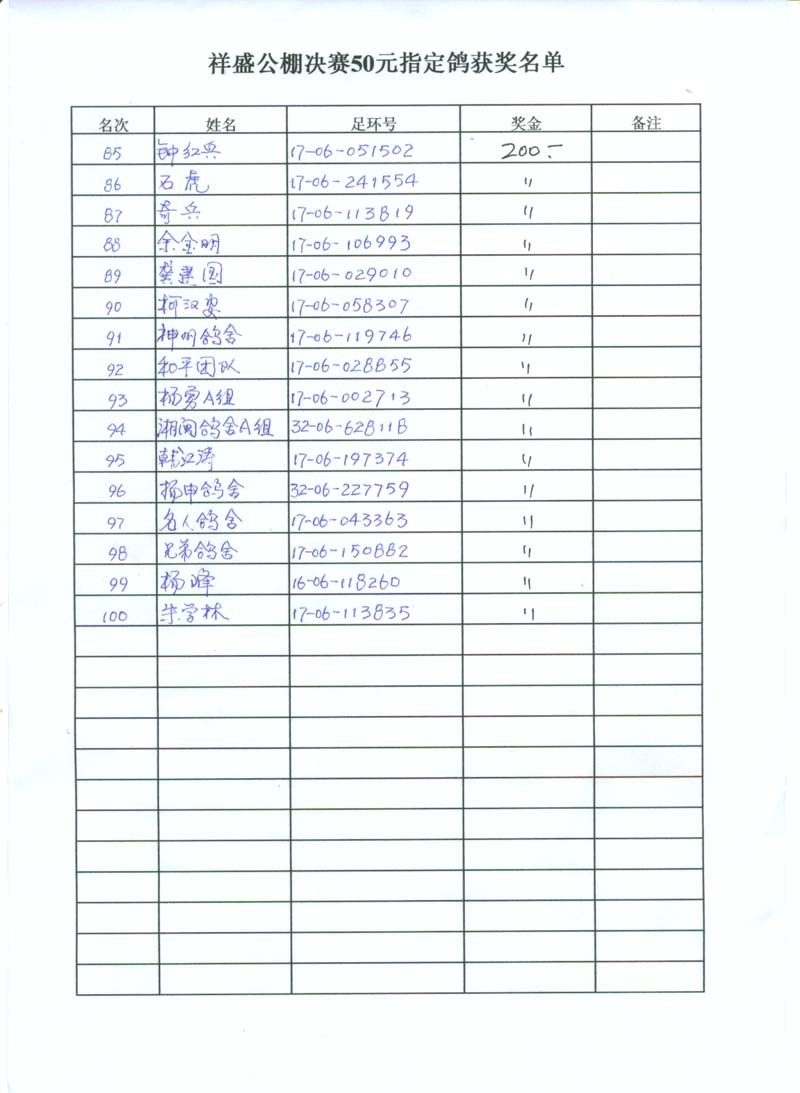 祥盛公棚决赛50元指定鸽获奖名单
名次 姓名 足环号 奖金 备注
85 钟红兵 17-06-051502 200.-
86 石虎 17-06-241554 〃
87 奇兵 17-06-113819 〃
88 余金明 17-06-106993 〃
89 龚建国 17-06-029010 〃
90 柯汉 17-06-058307 〃
91 神州鸽舍 17-06-119746 〃
92 和平团队 17-06-028855 〃
93 杨勇A组 17-06-002713 〃
94 湘闽鸽舍A组 32-06-628118 〃
95 韩江涛 17-06-197374 〃
96 杨申鸽舍 32-06-227759 〃
97 名人鸽舍 17-06-043363 〃
98 兄弟鸽舍 17-06-150882 〃
99 杨峰 16-06-118260 〃
100 朱学林 17-06-113835 〃